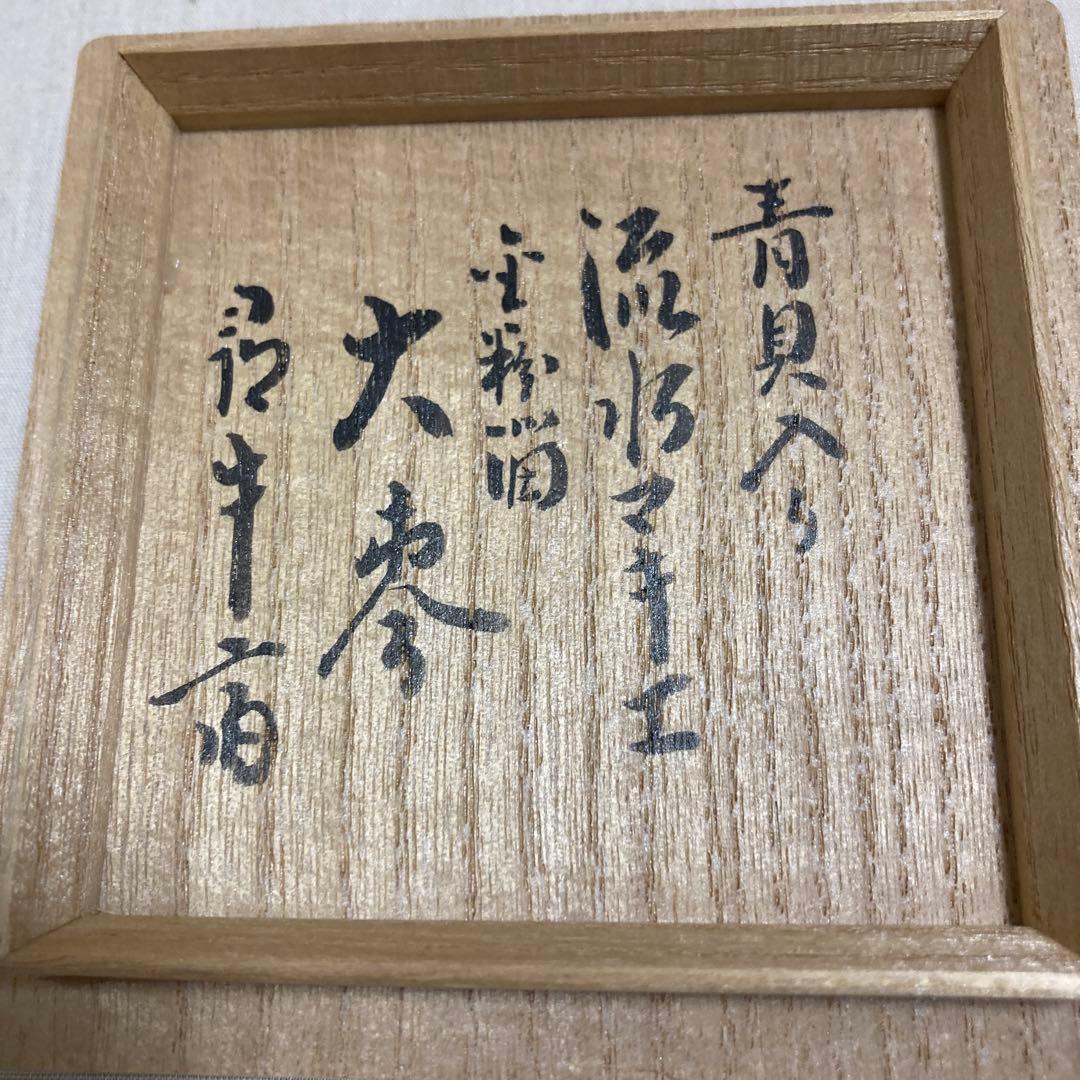 青貝入り
流水マキエ
金粉溜
大棗
尋牛斎